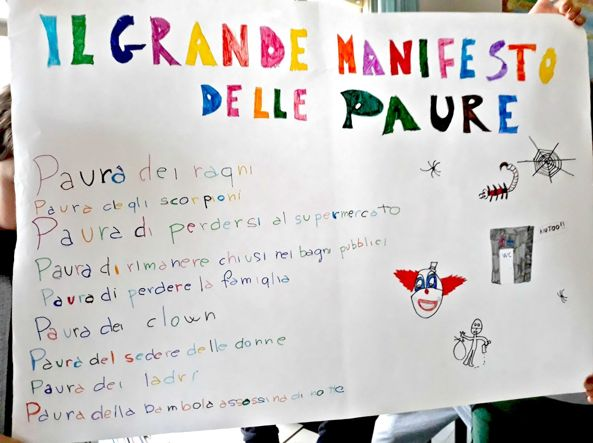 IL GRANDE MANIFESTO
DELLE PAURE
Paura dei ragni
Paura degli scorpioni
Paura di perdersi al supermercato
Paura di rimanere chiusi nei bagni pubblici
Paura di perdere la famiglia
Paura dei clown
Paura del sedere delle donne
Paura dei ladri
Paura della bambola assassina di notte
AIUTOO!!
WC